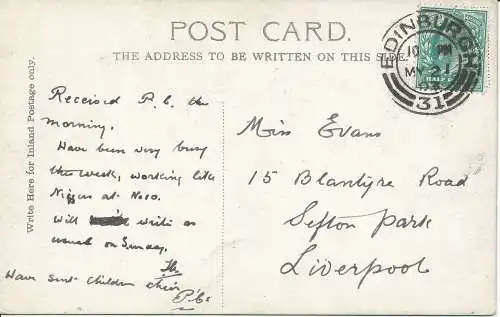 POST CARD.
THE ADDRESS TO BE WRITTEN ON THIS SIDE.
Write Here for Inland Postage only.
EDINBURGH
MY 21
31
HALF
Received P.C. this
morning.
Have been very busy
this week, working like
Niggers at No10.
Will write as
usual on Sunday.
Have sent children their
P.Cs
Miss Evans
15 Blantyre Road
Sefton Park
Liverpool